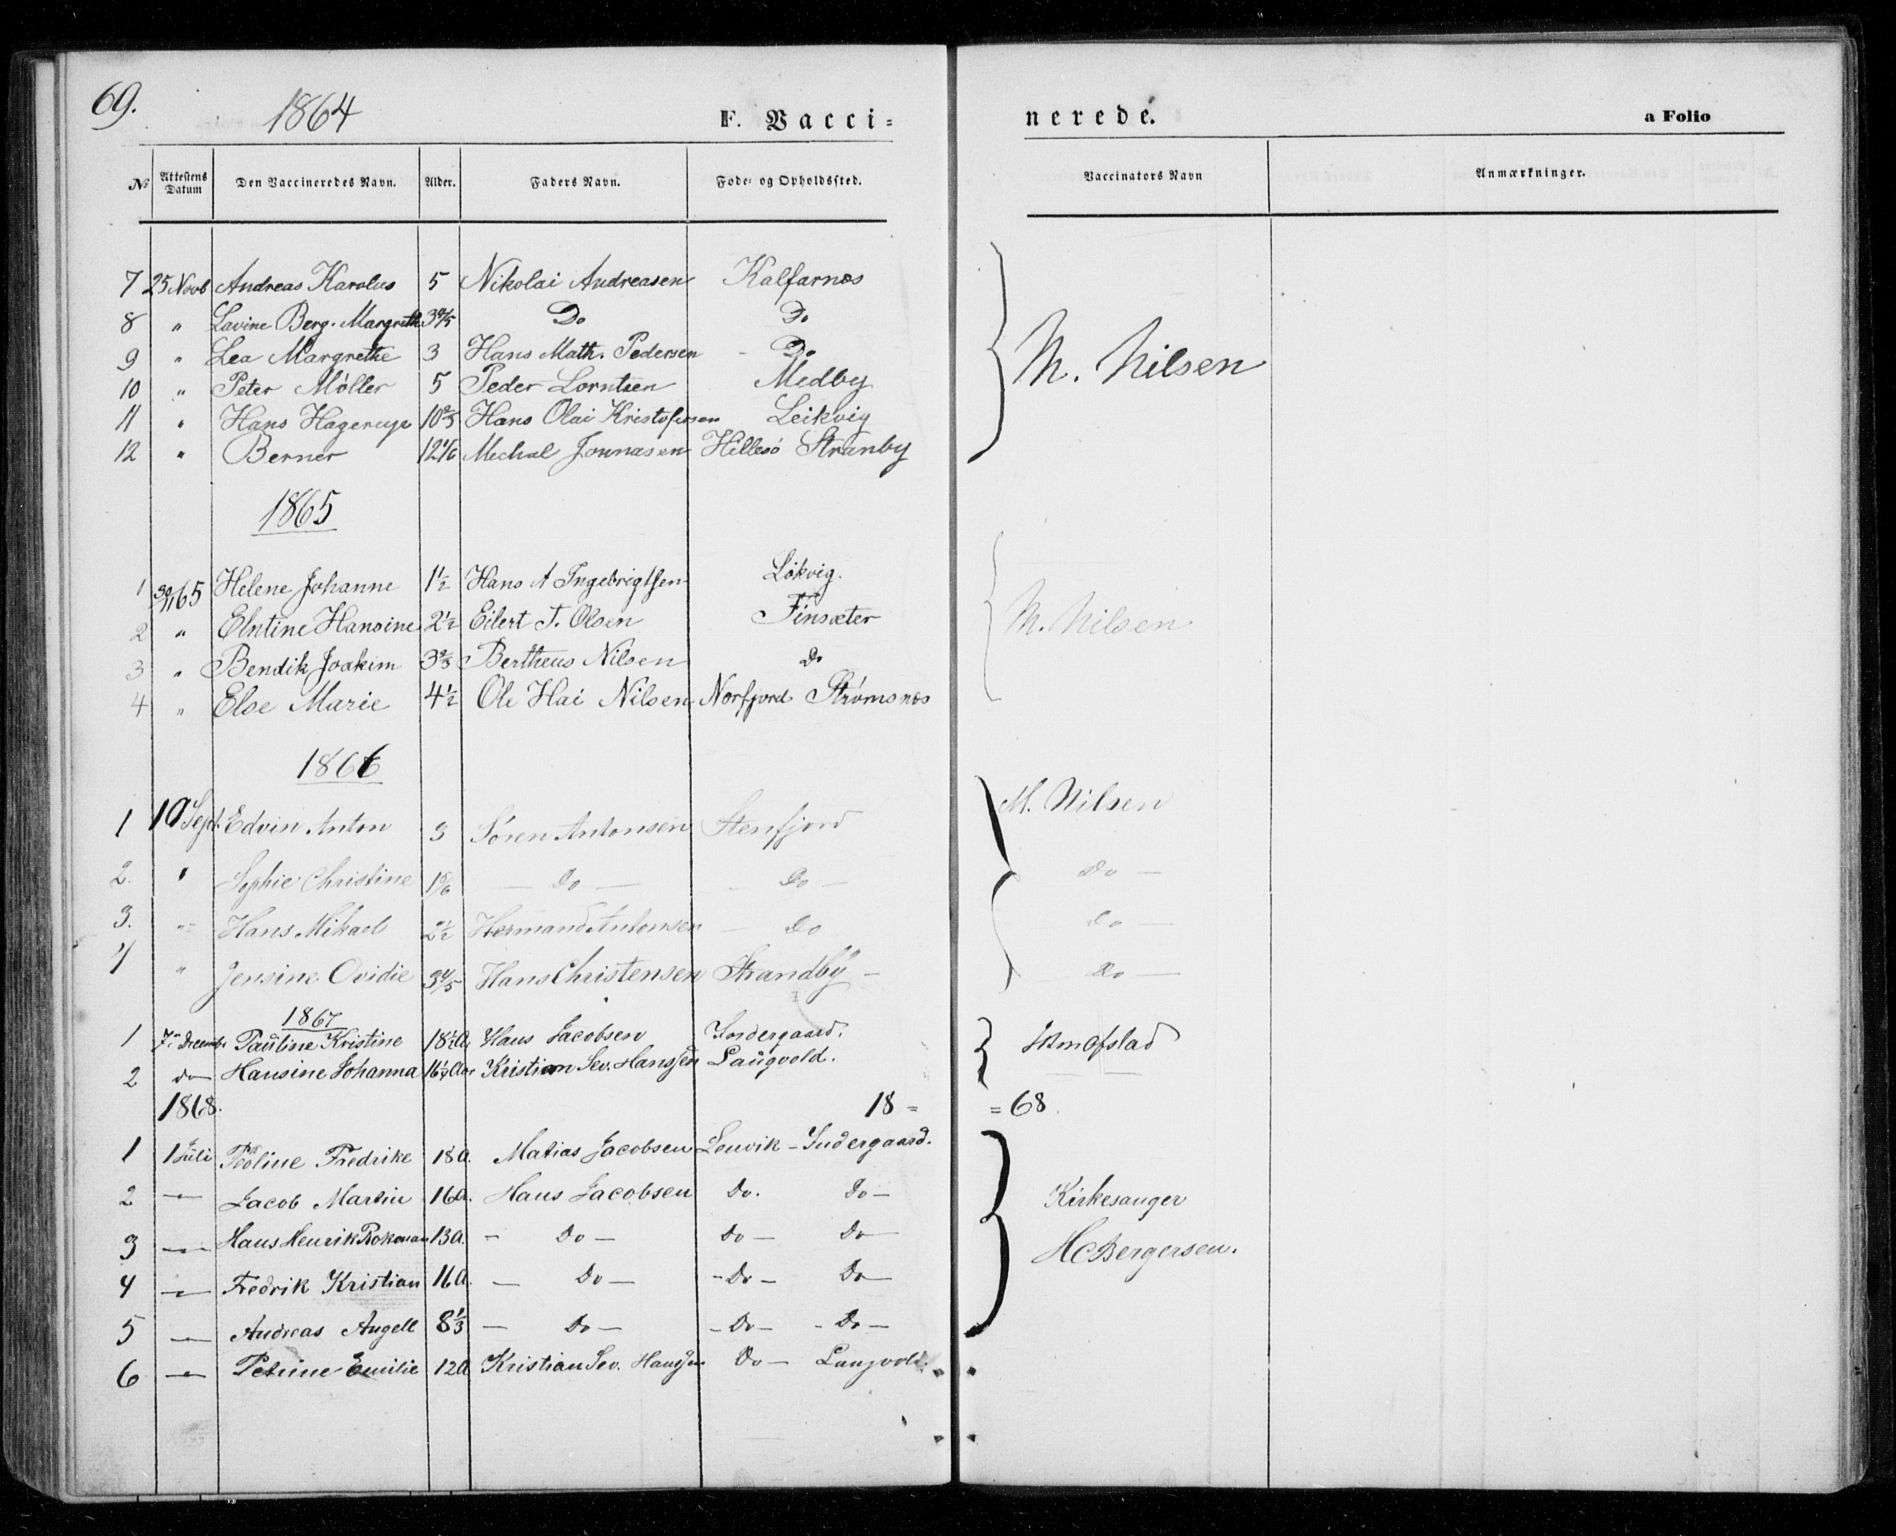 69. 1864 F. Vacci= nerede. a Folio
No Attestens Datum Den Vaccineredes Navn. Alder. Faders Navn. Føde- og Opholdssted. Vaccinators Navn Anmærkninger.
7 25 Novb Andreas Karolus 5 Nikolai Andreasen Kalfarnes
8 " Lavine Berg. Margrethe 3 4/5 Do Do
9 " Lea Margrethe 3 Hans Math. Pedersen - Do M. Nilsen
10 " Peter Møller 5 Peder Lorntsen Medby
11 " Hans Hagerup 10 2/3 Hans Olai Kristofersen Leikvig
12 " Berner 12 1/6 Mechal Jonnasen Hillesö Stranby
1865
1 30/11 65 Helene Johanne 1 1/2 Hans A Ingebrigtsen Lökvig.
2 " Elntine Hansine 2 1/2 Eilert T. Olsen Finsæter M. Nilsen
3 " Bendik Joakim 3 2/3 Bertheus Nilsen Do
4 " Else Marie 4 1/2 Ole Hai Nilsen Norfjord Strømsnes
1866
1 10 Sept. Edvin Anton 3 Sören Antonsen Stenfjord M. Nilsen
2. " Sophie Christine 1 5/6 — Do — — Do — Do —
3. " Hans Mikael 2 1/2 Hermand Antonsen — Do Do —
4 " Jensine Ovidie 3 4/5 Hans Christensen Strandby — Do —
1867
1 7de Decembr Pauline Kristine 18 1/2 A. Hans Jacobsen Indergaard.
2 do Hansine Johanna 16 1/4 Aar Kristian Sev. Hanssen Laugvold.
1868. 18 = = 68.
1 1 Juli Paoline Fredrike 18 A. Matias Jacobsen Lenvik - Indergaard.
2 — Jacob Martin 16 A. Hans Jacobsen Do. Do — Kirkesanger
3 — Hans Henrik 13 A. — Do — Do — Do — HC Bergersen.
4 — Fredrik Kristian 16 A. — Do — - Do — Do —
5 — Andreas Angell 8 1/3 — Do — - Do — - Do —
6 — Petrine Emilie 12 A Kristian Sev. Hanssen Do — Laugvold.